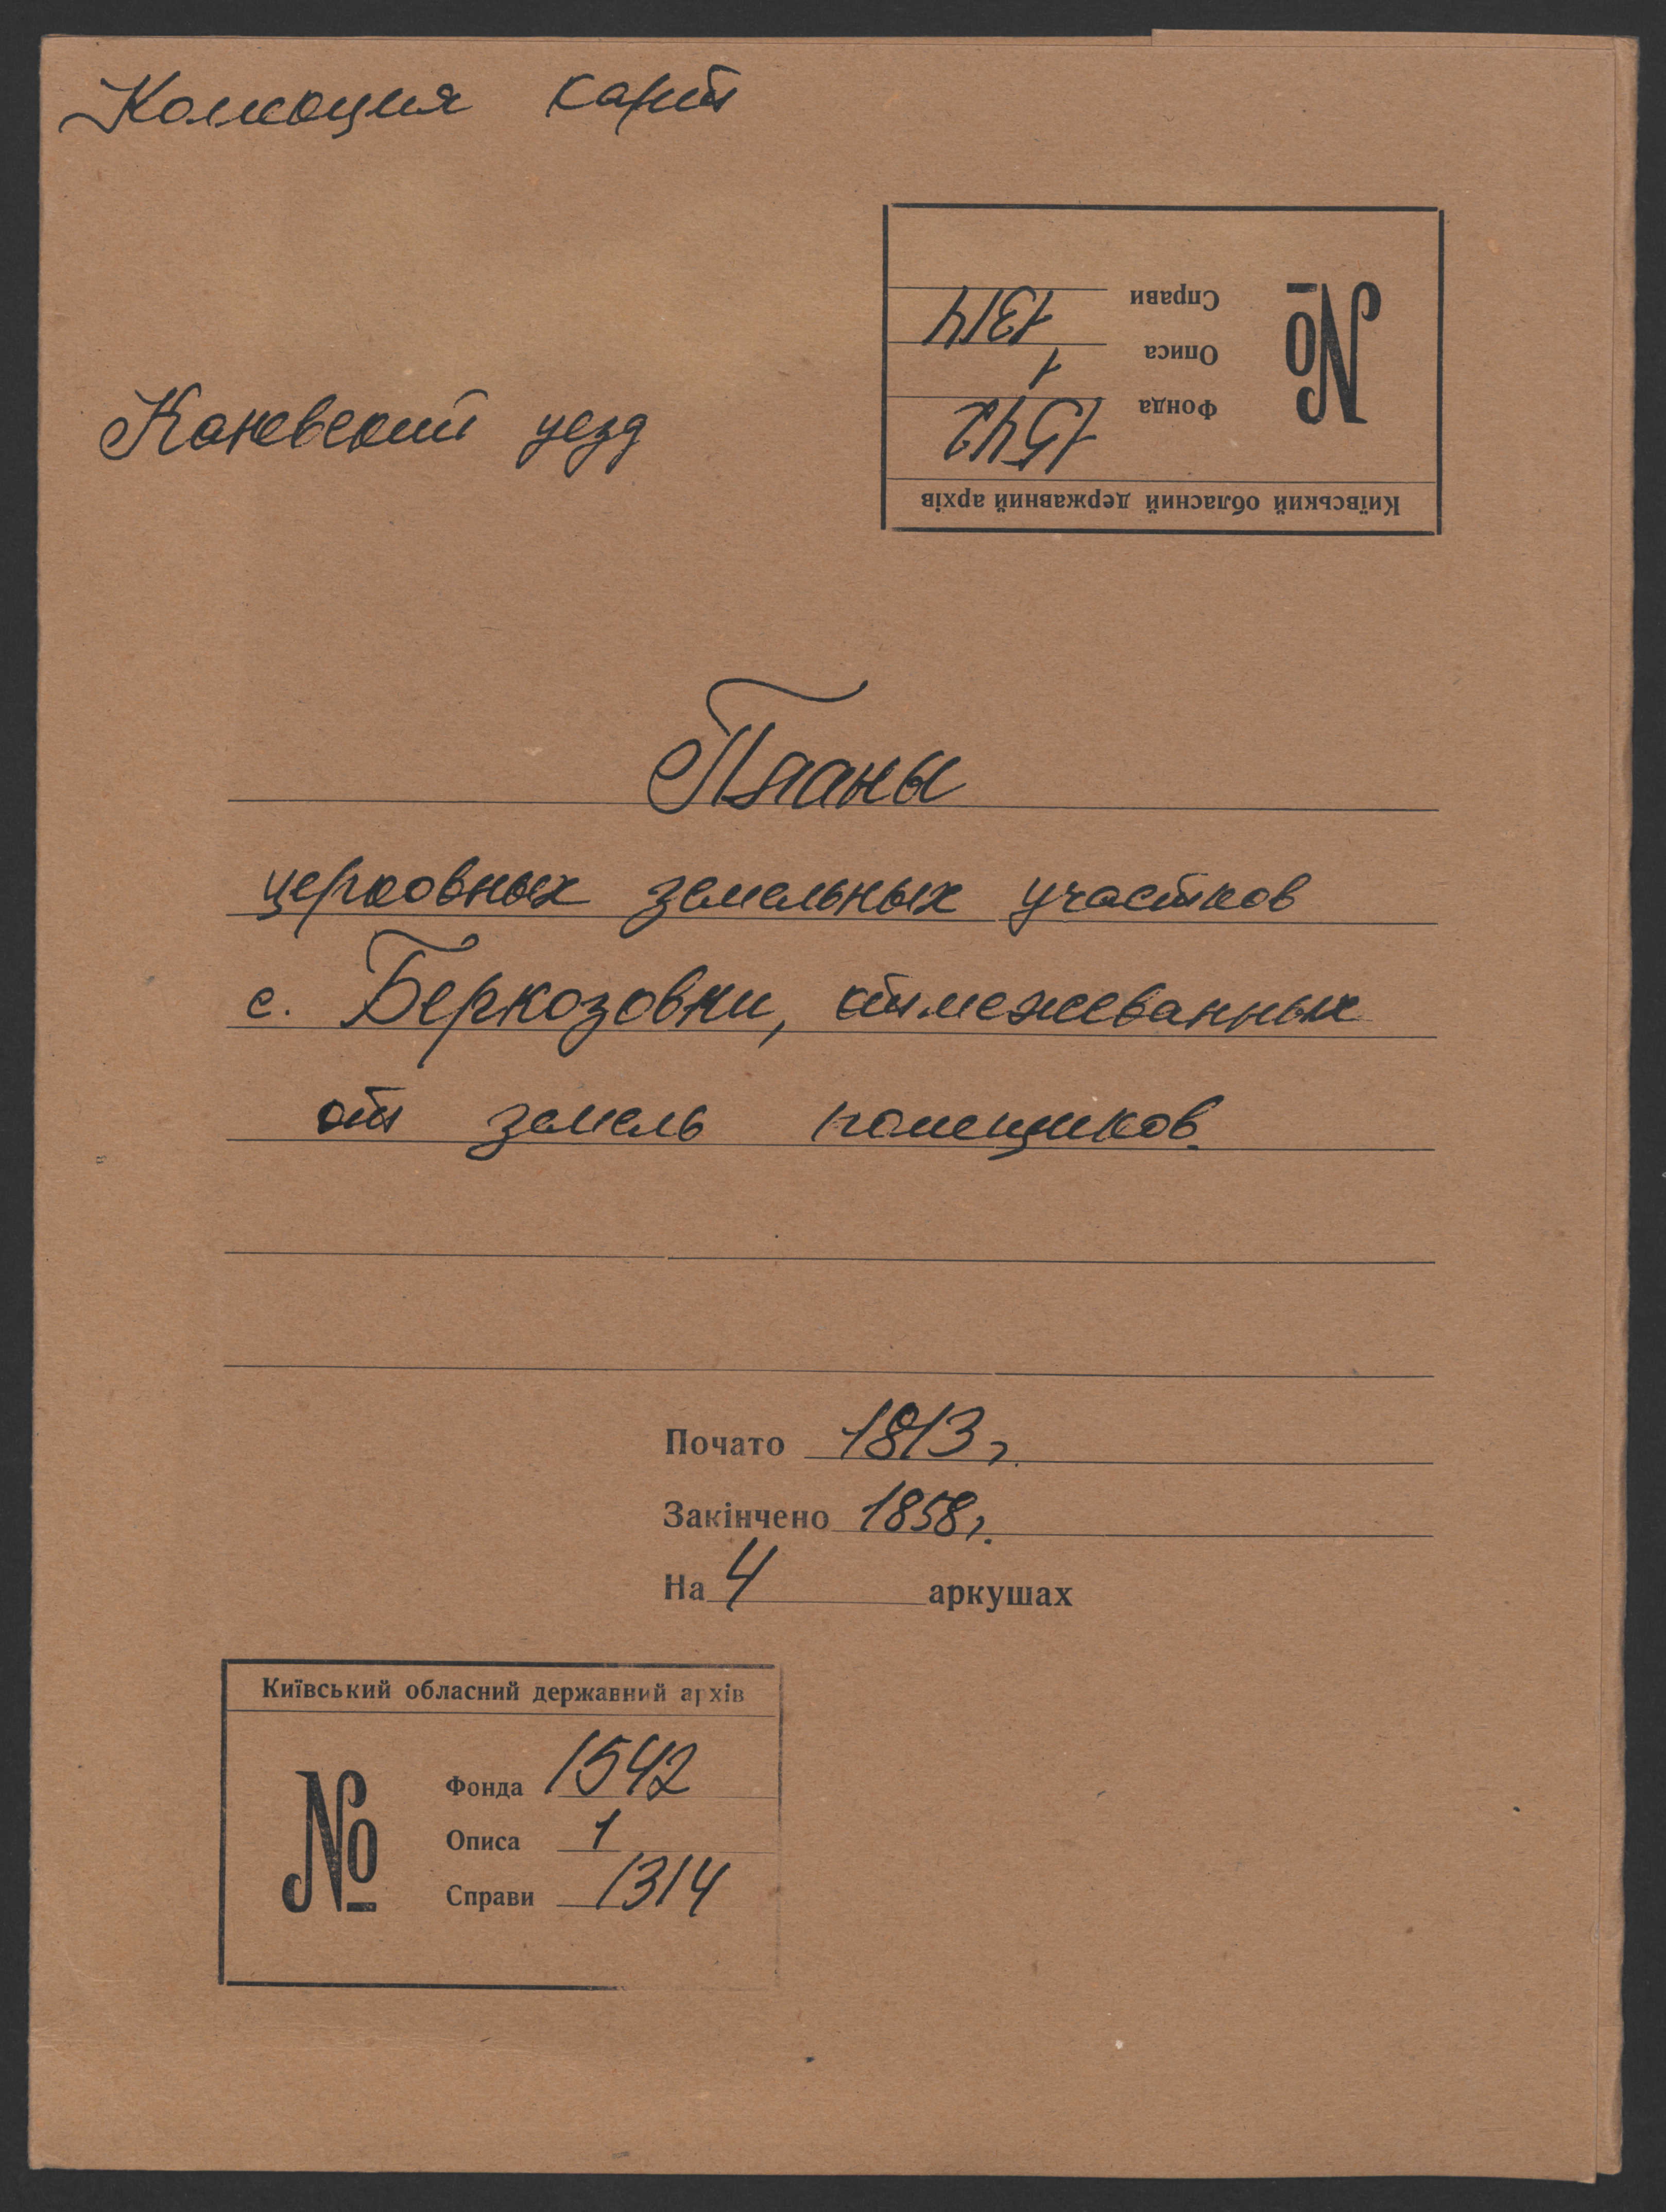 Коллекция карт
Київський обласний державний архів
№
Фонда 1542
Описа 1
Справи 1314
Каневский уезд
Планы
церковных земельных участков
с. Беркозовки, отмежеванных
от земель помещиков.
Почато 1813 г.
Закінчено 1858 г.
На 4 аркушах
Київський обласний державний архів
№
Фонда 1542
Описа 1
Справи 1314